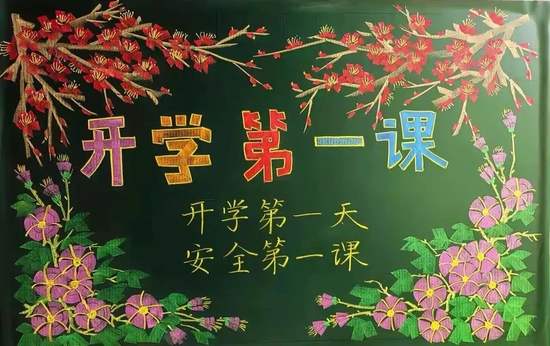 开学第一课
开学第一天
安全第一课